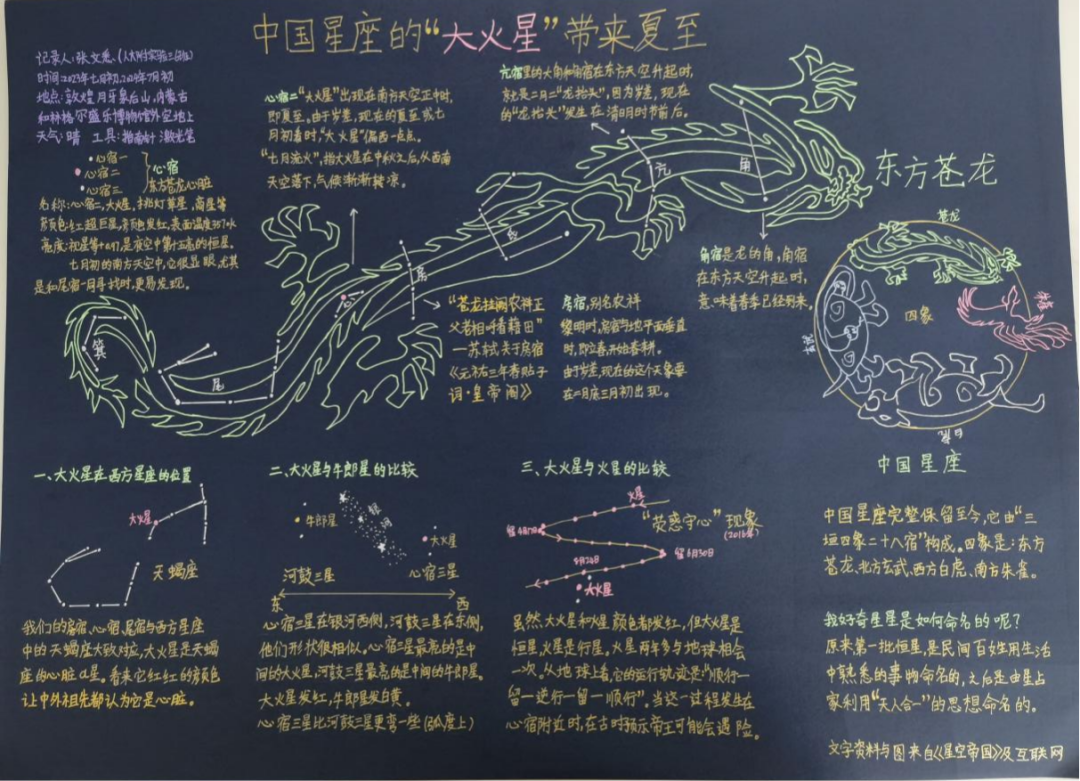 中国星座的“大火星”带来夏至
时间:2023年七月初,2024年7月初
地点:敦煌月牙泉后山,内蒙古
和林格尔盛乐博物馆外空地上
天气:晴 工具:指南针 激光笔
心宿一
心宿二
心宿三
心宿
东方苍龙心脏
名称:心宿二,大火星,
七月初的南方天空中,它很显眼,尤其
是和尾宿一同寻找时,更易发现。
心宿二“大火星”出现在南方天空正中时,
即夏至。由于岁差,现在的夏至或七
月初看时,“大火星”偏西一点点。
“七月流火”,指大火星在中秋之后,从西南
天空落下,气候渐渐转凉。
亢宿里的大角和角宿在东方天空升起时,
就是二月二“龙抬头”,因为岁差,现在
的“龙抬头”发生在清明时节前后。
东方苍龙
角
亢
氐
房
心
尾
箕
角宿是龙的角,角宿
在东方天空升起时,
意味着春季已经到来。
“苍龙挂阙农祥正
父老相呼看藉田”
—苏轼关于房宿
《元祐三年春贴子
词·皇帝阁》
房宿,别名农祥
黎明时,房宿与地平面垂直
时,即立春,开始春耕。
由于岁差,现在的这个天象要
在二月底三月初出现。
苍龙
四象
中国星座
一、大火星在西方星座的位置
大火星
天蝎座
我们的房宿、心宿、尾宿与西方星座
中的天蝎座大致对应,大火星是天蝎
座的心脏α星。看来它红红的颜色
让中外祖先都认为它是心脏。
二、大火星与牛郎星的比较
牛郎星
银河
大火星
河鼓三星
心宿三星
东
西
心宿三星在银河西侧,河鼓三星在东侧,
他们形状很相似。心宿三星最亮的是中
间的大火星,河鼓三星最亮的是中间的牛郎星。
大火星发红,牛郎星发白黄。
心宿三星比河鼓三星更弯一些(弧度上)
三、大火星与火星的比较
火星
“荧惑守心”现象
(2016年)
留4月17日
留6月30日
5月24日
大火星
虽然大火星和火星颜色都发红,但大火星是
恒星,火星是行星。火星两年多与地球相会
一次。从地球上看,它的运行轨迹是“顺行—
留—逆行—留—顺行”。当这一过程发生在
心宿附近时,在古时预示帝王可能会遇险。
中国星座完整保留至今,它由“三
垣四象二十八宿”构成。四象是:东方
苍龙、北方玄武、西方白虎、南方朱雀。
我好奇星星是如何命名的呢?
原来第一批恒星,是民间百姓用生活
中熟悉的事物命名的,之后是由星占
家利用“天人合一”的思想命名的。
文字资料与图来自《星空帝国》及互联网